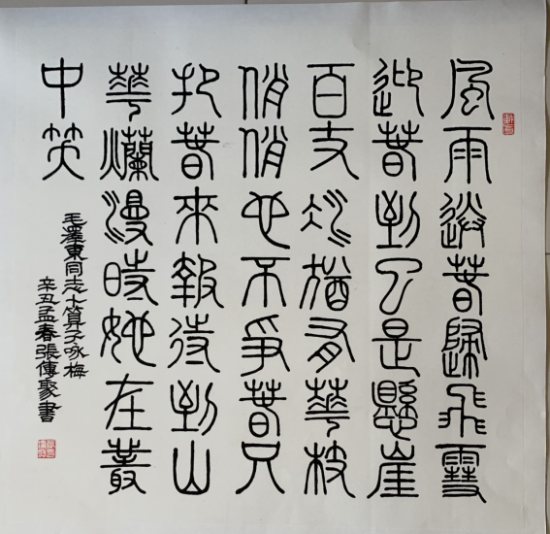 風雨送春歸飛雪
迎春到已是懸崖
百丈冰猶有華枝
俏俏也不爭春只
把春來報待到山
華爛漫時她在叢
中笑
毛澤東同志卜算子咏梅
辛丑孟春張傳聚書